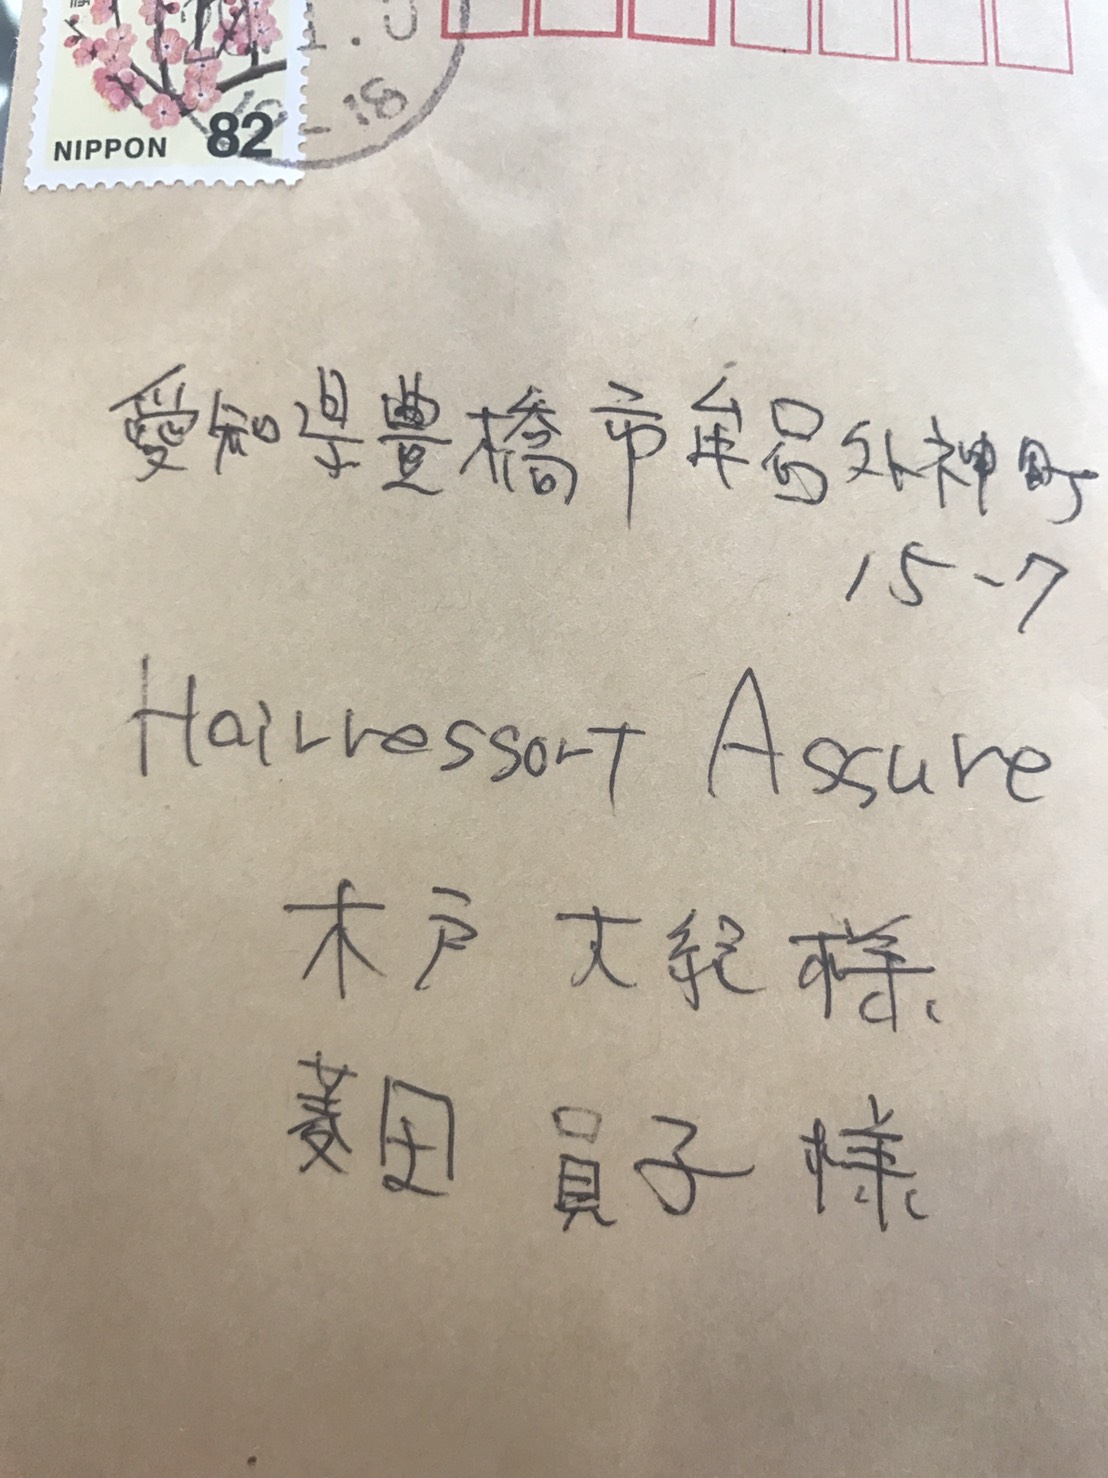 NIPPON 82
12-18
愛知県豊橋市牟呂外神町
15-7
Hairressort Assure
木戸 大紀 様
菱田 員子 様